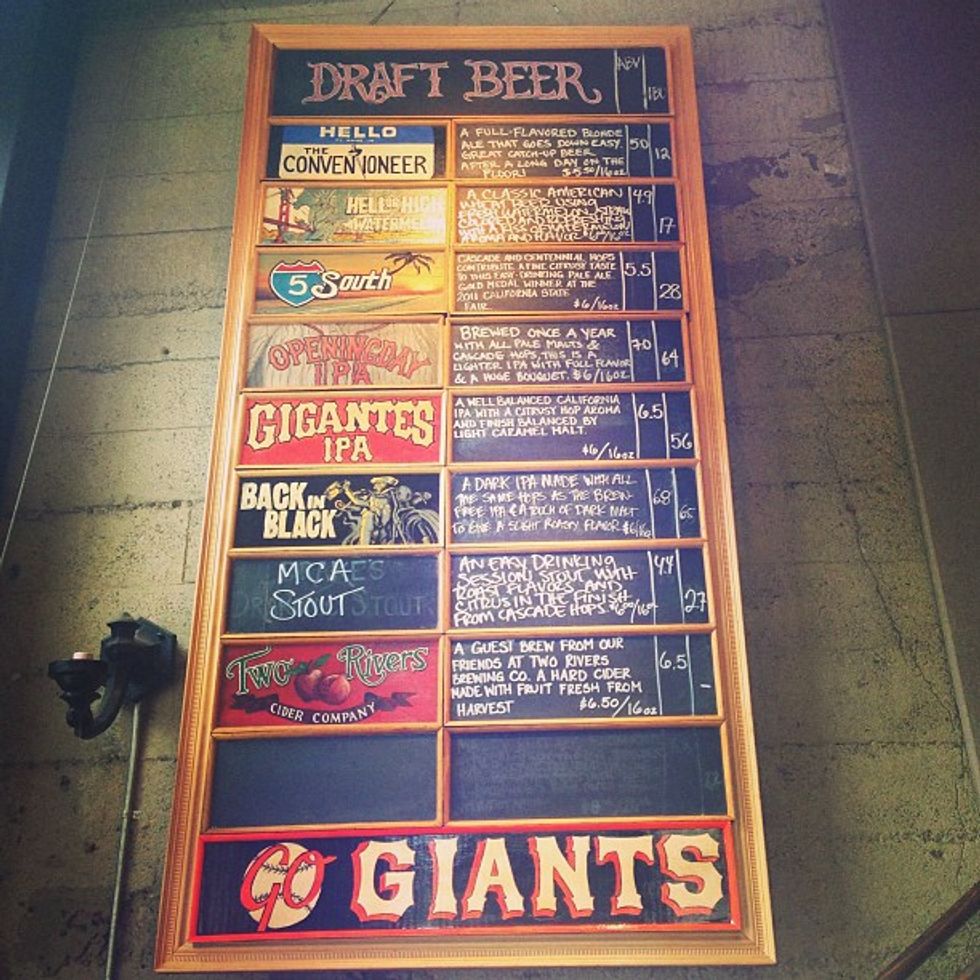 DRAFT BEER
ABV
IBU
HELLO
THE
CONVENTIONEER
A FULL-FLAVORED BLONDE
ALE THAT GOES DOWN EASY.
GREAT CATCH-UP BEER
AFTER A LONG DAY ON THE
FLOOR! $5.50/16oz
5.0
12
HELL OR HIGH
WATERMELON
A CLASSIC AMERICAN
WHEAT BEER USING
FRESH WATERMELON. STRAW
COLORED AND REFRESHING
WITH A KISS OF WATERMELON
AROMA AND FLAVOR $6/16oz
4.9
17
5 South
CASCADE AND CENTENNIAL HOPS
CONTRIBUTE A FINE CITRUSY TASTE
TO THIS EASY-DRINKING PALE ALE.
GOLD MEDAL WINNER AT THE
2011 CALIFORNIA STATE
FAIR. $6/16oz
5.5
28
OPENING DAY
IPA
BREWED ONCE A YEAR
WITH ALL PALE MALTS &
CASCADE HOPS, THIS IS A
LIGHTER IPA WITH FULL FLAVOR
& A HUGE BOUQUET. $6/16oz
7.0
64
GIGANTES
IPA
A WELL BALANCED CALIFORNIA
IPA WITH A CITRUSY HOP AROMA
AND FINISH BALANCED BY
LIGHT CARAMEL MALT.
$6/16oz
6.5
56
BACK IN
BLACK
A DARK IPA MADE WITH ALL
THE SAME HOPS AS THE BREW
FREE IPA & A TOUCH OF DARK MALT
TO GIVE A SLIGHT ROASTY FLAVOR $6/16oz
6.8
65
MCA'S
STOUT
AN EASY DRINKING
SESSION STOUT WITH
ROAST FLAVORS AND
CITRUS IN THE FINISH
FROM CASCADE HOPS. $6/16oz
4.4
27
Two Rivers
CIDER COMPANY
A GUEST BREW FROM OUR
FRIENDS AT TWO RIVERS
BREWING CO. A HARD CIDER
MADE WITH FRUIT FRESH FROM
HARVEST $6.50/16oz
6.5
-
GO GIANTS